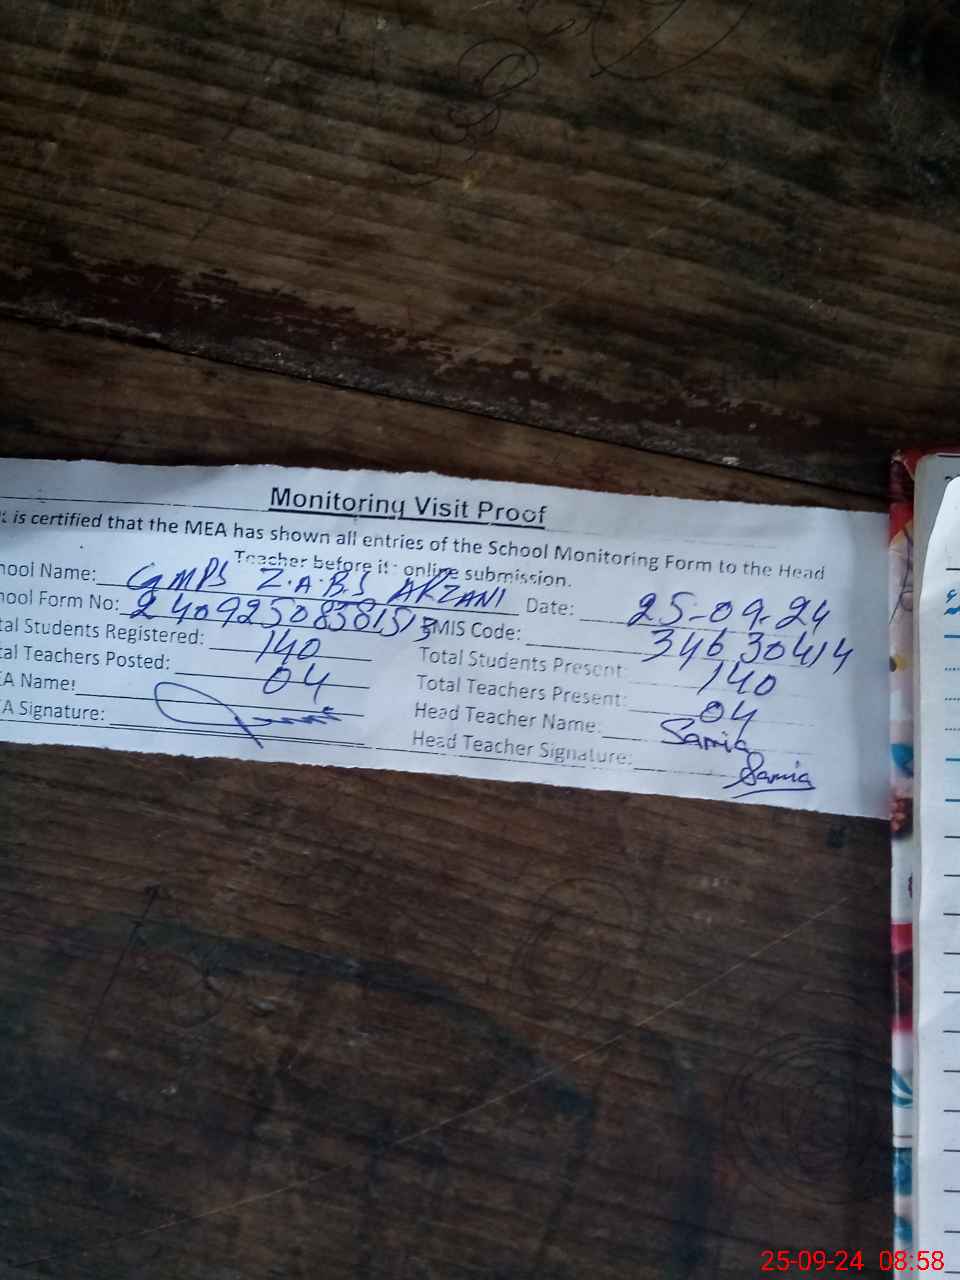 Monitoring Visit Proof
t is certified that the MEA has shown all entries of the School Monitoring Form to the Head
Teacher before its online submission.
hool Name: GMPS Z.A.B.S ARZANI Date: 25-09-24
hool Form No: 240925083815 EMIS Code: 34630414
tal Students Registered: 140 Total Students Present: 140
tal Teachers Posted: 04 Total Teachers Present: 04
EA Name: Head Teacher Name: Samia
EA Signature: Head Teacher Signature: Samia
25-09-24 08:58